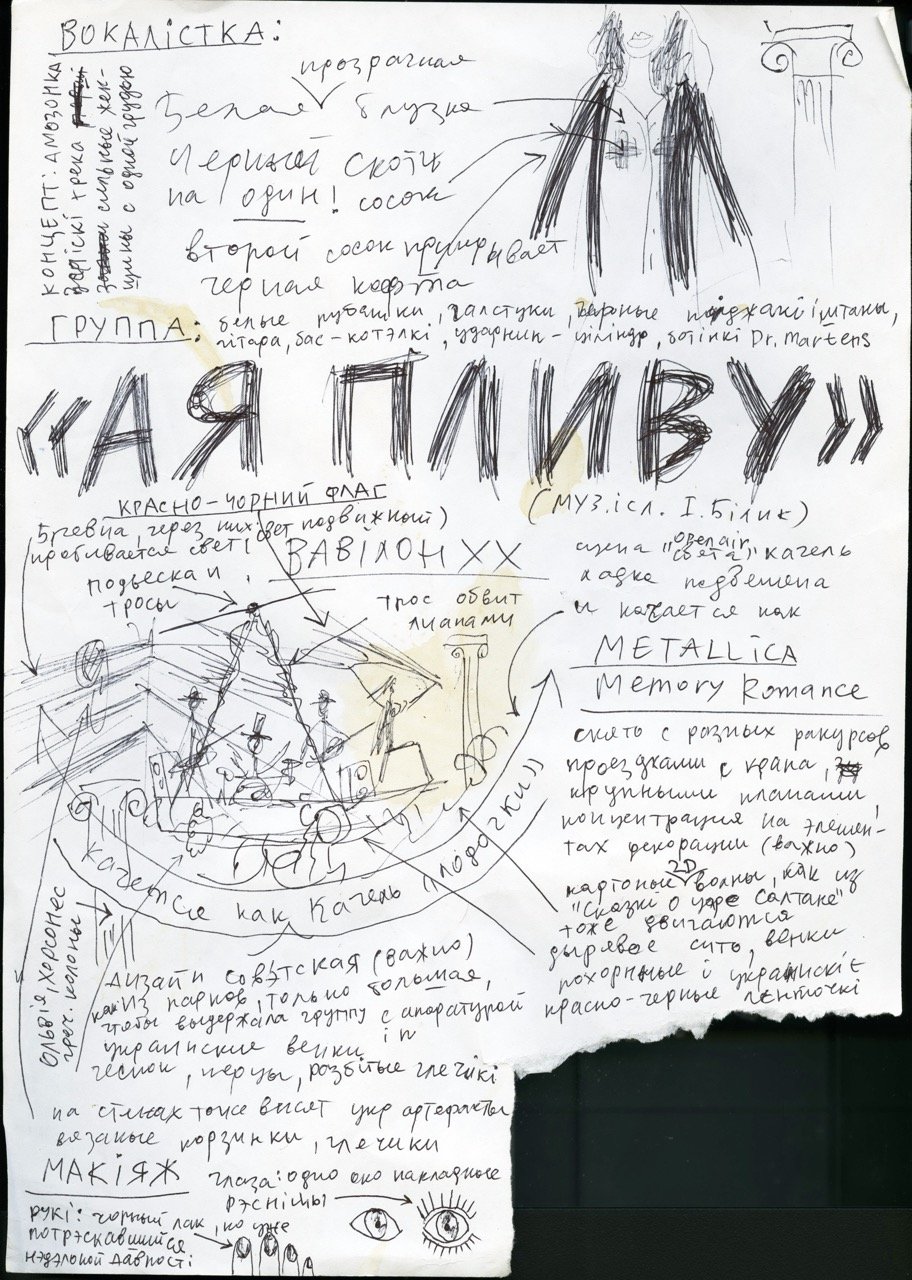 ВОКАЛІСТКА:
КОНЦЕПТ: АМОЗОНКА
сильные жен-
щины с одной грудью
прозрачная
Белая блузка
Черный скотч
на один! сосок
второй сосок прикрывает
черная кофта
ГРУППА: белые рубашки, галстуки, черные піджакі і штаны,
гітара, бас - котэлкі, ударник - ціліндр, ботінкі Dr. Martens
«А Я ПЛИВУ»
(МУЗ. ІСЛ. І. Білик)
КРАСНО-ЧОРНИЙ ФЛАГ
Бревна, через них свет подвижный)
пробивается свет!
ВАВІЛОН ХХ
подвеска и
тросы
трос обвит
лианами
сцена "openair
света", качель
лодка подвешена
и качается как
METALLICA
Memory Romance
снято с разных ракурсов
проездками с крана,
крупными планами,
концентрация на элемен-
тах декорации (важно)
картоные 2D волны, как из
"Сказкі о царе Салтане"
тоже двигаются
дырявое сито, венки
похорные і украінскіє
красно-черные ленточкі
качетсіе как Качель «лодочки»
Ольвія, Хєрсонес
греч. колоны
дизайн совэтская (важно)
как из парков, только большая,
чтобы выдержала группу с апоратурой
украинские венки
чеснок, перцы, розбітые глечікі
на стенах тоже висят укр артефакты
вязаные корзинки, глечики
МАКІЯЖ
глаза: одно око накладные
рэсніцы
рукі: чорный лак, но уже
потрэскавшийся
нэдэльной давності